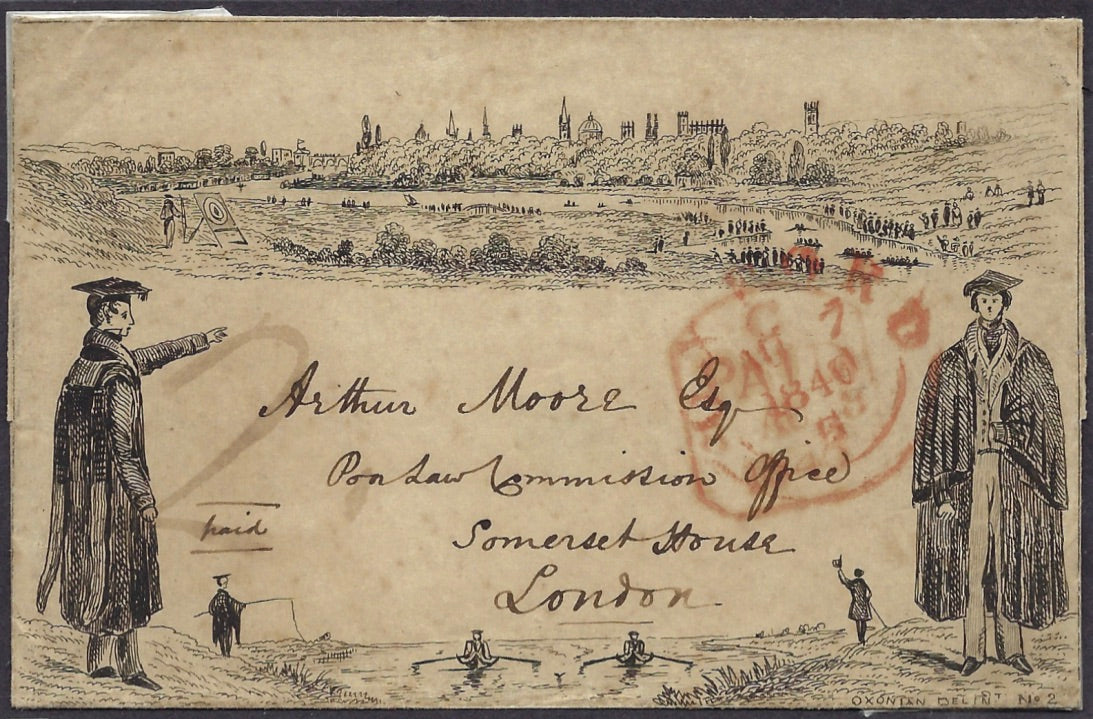 Arthur Moore Esq
Poor Law Commission Office
paid
Somerset House
London
PAID
1840
OXONIAN DELINT No 2